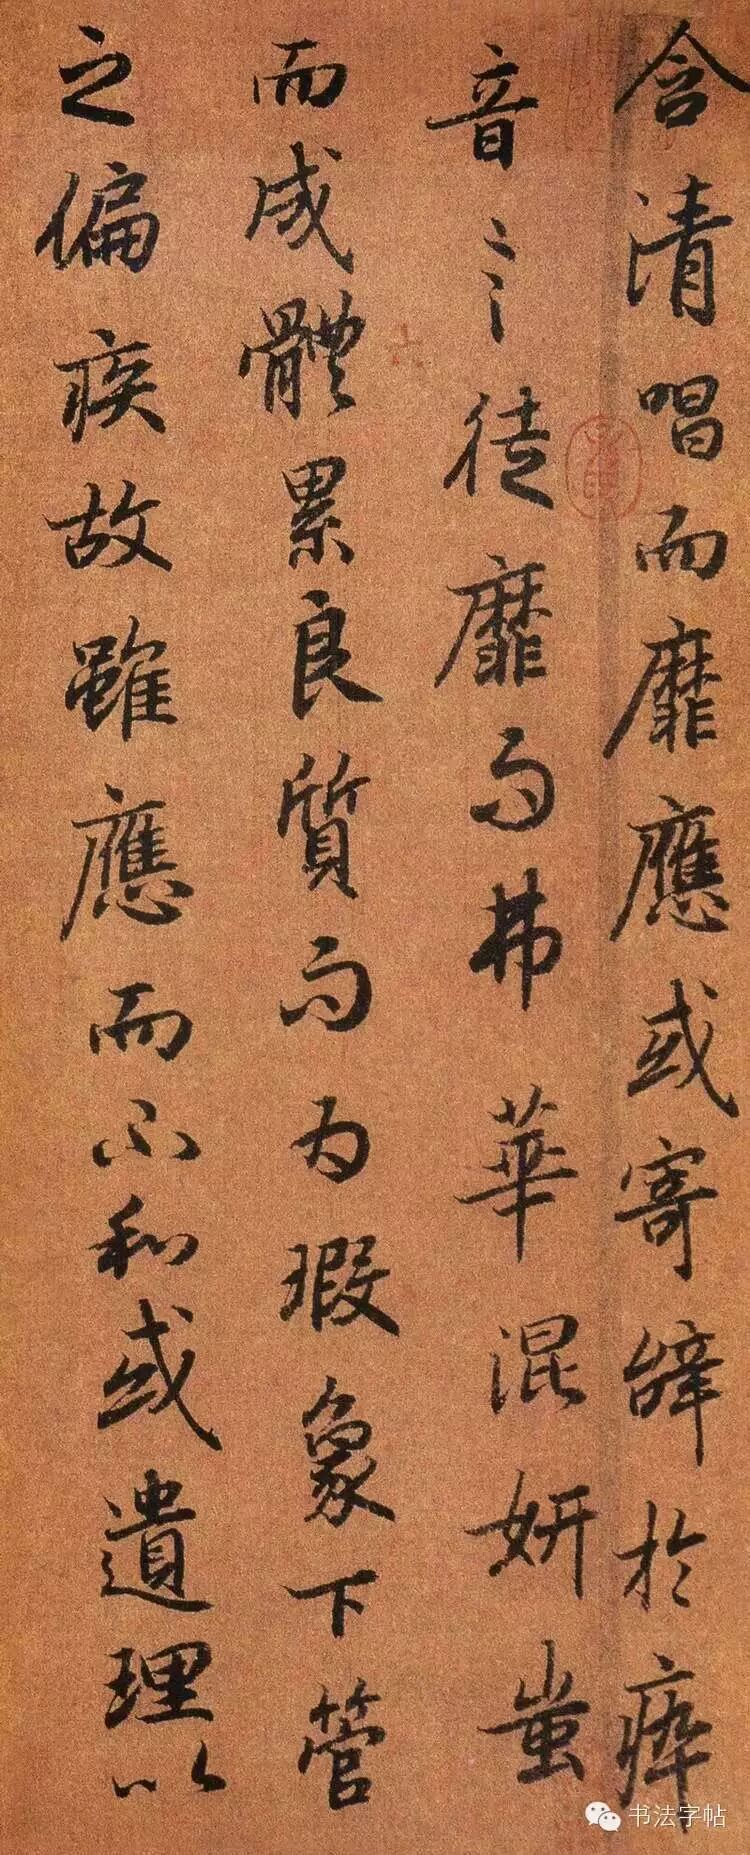 含清唱而靡應或寄辭於瘁
音之徒靡而弗華混妍蚩
而成體累良質而為瑕象下管
之偏疾故雖應而不和或遺理以
书法字帖